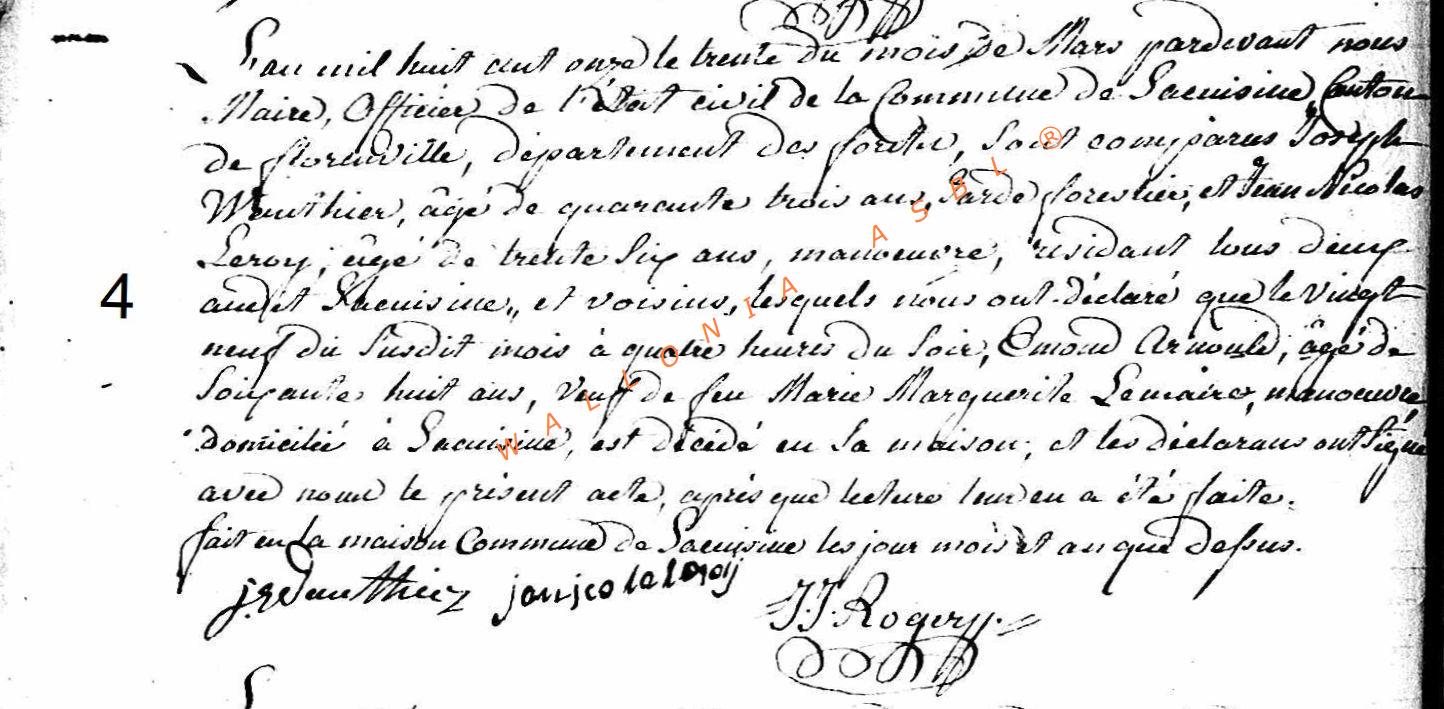 L'an mil huit cent onze le trente du mois de Mars pardevant nous
Maire, Officier de l'état civil de la Commune de Lacuisine, Canton
de florenville, département des forêts, sont comparus Joseph
Wauthier, âgé de quarante trois ans, Garde forestier, et Jean Nicolas
Leroy, âgé de trente six ans, manoeuvre, résidant tous deux
audit Lacuisine, et voisins, lesquels nous ont déclaré que le vingt
4
neuf du susdit mois à quatre heures du soir, Emond Arnould, âgé de
soixante huit ans, veuf de feu Marie Marguerite Lemaire, manoeuvre
domicilié à Lacuisine, est décédé en sa maison; et les déclarans ont signé
avec nous le présent acte, après que lecture leur en a été faite.
fait en la maison Commune de Lacuisine les jour mois et an que dessus.
j Wauthier janjcola leroij J.J. Rogery.
WALLONIA ASBL ®